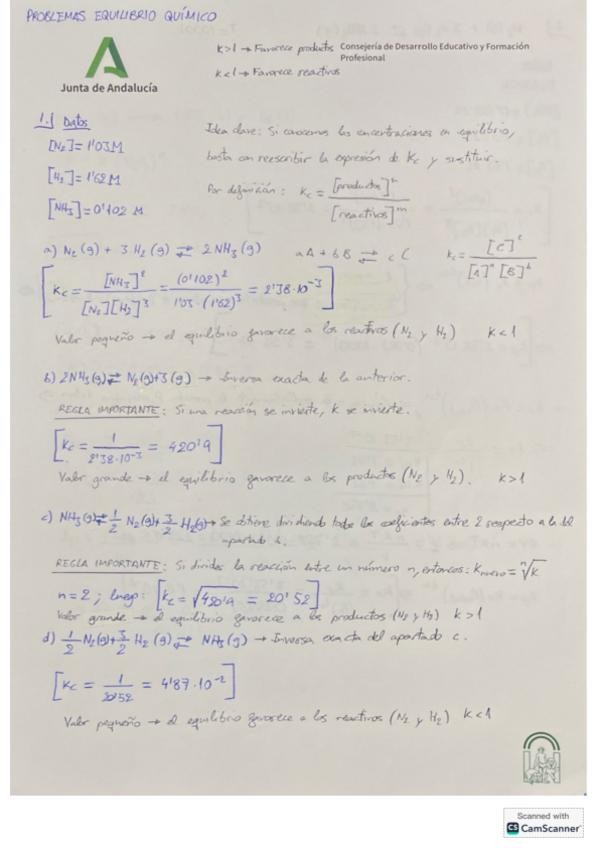 PROBLEMAS EQUILIBRIO QUÍMICO
K>1 → Favorece productos
Consejería de Desarrollo Educativo y Formación
Profesional
K<1 → Favorece reactivos
Junta de Andalucía
1.) Datos
[N₂]= 1'03 M
[H₂]= 1'62 M
[NH₃]= 0'102 M
Idea clave: Si conocemos las concentraciones en equilibrio,
basta con reescribir la expresión de Kc y sustituir.
Por definición: Kc = [productos]ⁿ / [reactivos]ᵐ
a) N₂(g) + 3 H₂(g) ⇄ 2NH₃(g)
aA + bB ⇄ cC Kc = [C]ᶜ / [A]ᵃ [B]ᵇ
[Kc = [NH₃]² / [N₂][H₂]³ = (0'102)² / 1'03·(1'62)³ = 2'38·10⁻³]
Valor pequeño → el equilibrio favorece a los reactivos (N₂ y H₂) K<1
b) 2NH₃(g) ⇄ N₂(g)+3(g) → Inversa exacta de la anterior.
REGLA IMPORTANTE: Si una reacción se invierte, K se invierte.
[Kc = 1 / 2'38·10⁻³ = 420'9]
Valor grande → el equilibrio favorece a los productos (N₂ y H₂). K>1
c) NH₃(g) ⇄ 1/2 N₂(g)+ 3/2 H₂(g) → Se obtiene dividiendo todos los coeficientes entre 2 respecto a la del
apartado b.
REGLA IMPORTANTE: Si divides la reacción entre un número n, entonces: Knuevo = ⁿ√K
n=2; luego: [Kc = √420'9 = 20'52]
Valor grande → el equilibrio favorece a los productos (N₂ y H₂) K>1
d) 1/2 N₂(g)+ 3/2 H₂(g) ⇄ NH₃(g) → Inversa exacta del apartado c.
[Kc = 1 / 20'52 = 4'87·10⁻²]
Valor pequeño → el equilibrio favorece a los reactivos (N₂ y H₂) K<1
Scanned with
CS CamScanner